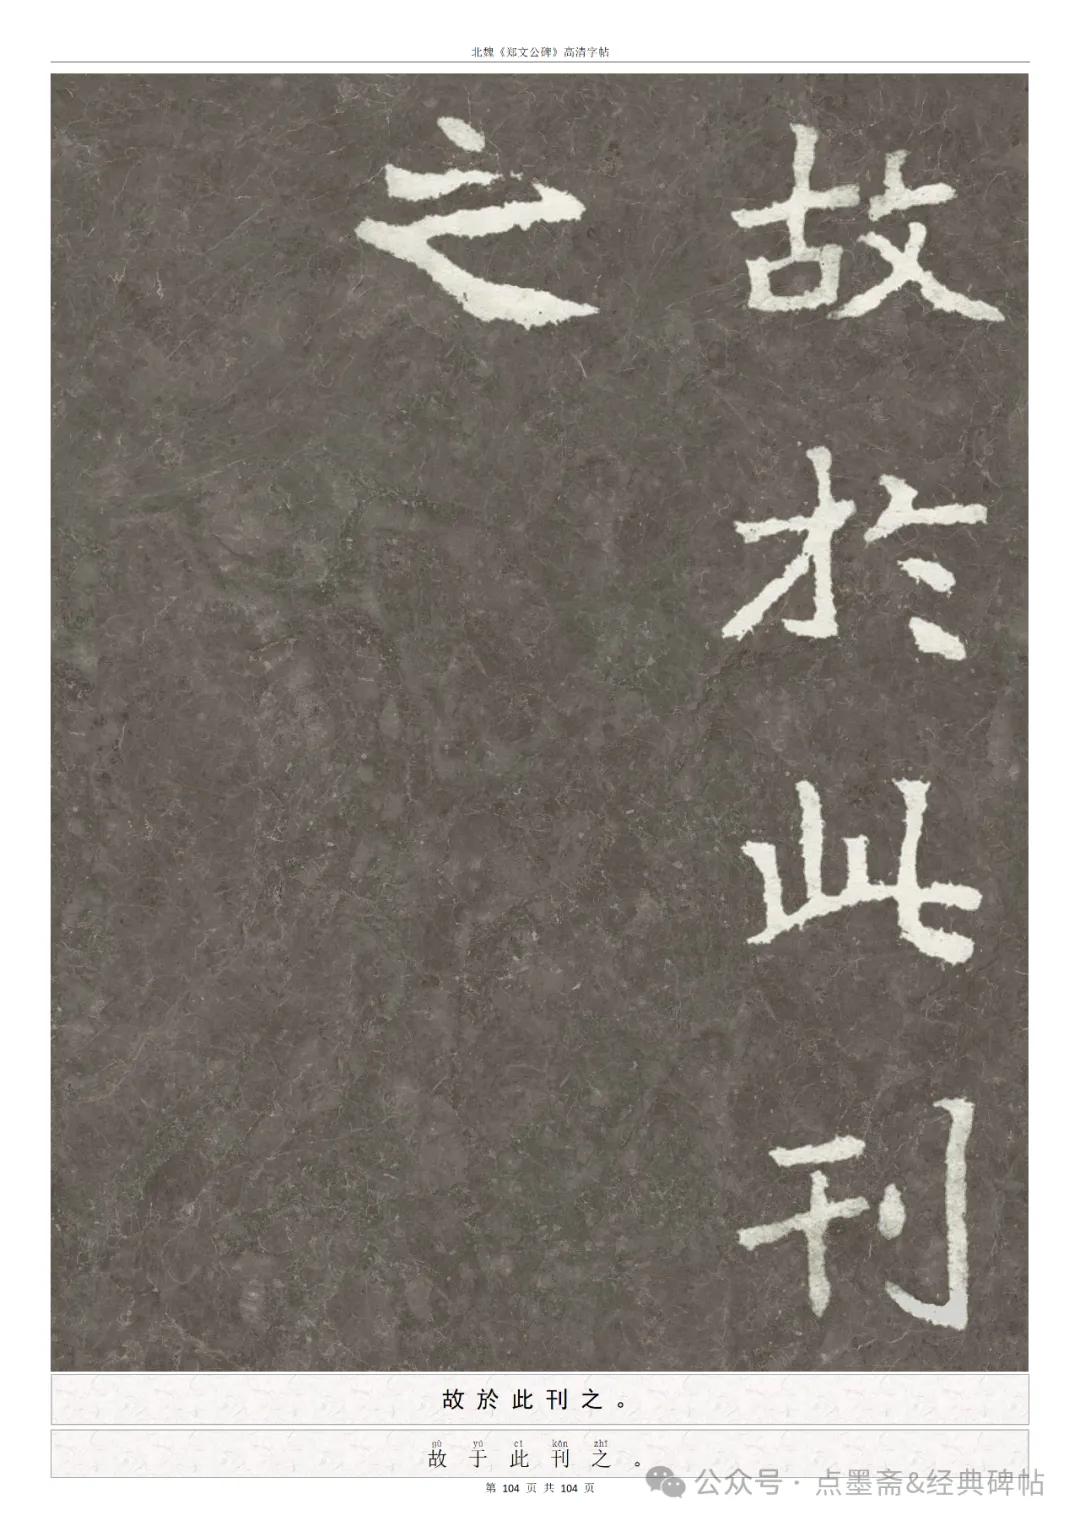 北魏《郑文公碑》高清字帖
故於此刊
之
故於此刊之。
gù yú cǐ kān zhī
故于此刊之。
第 104 页 共 104 页
公众号 · 点墨斋&经典碑帖